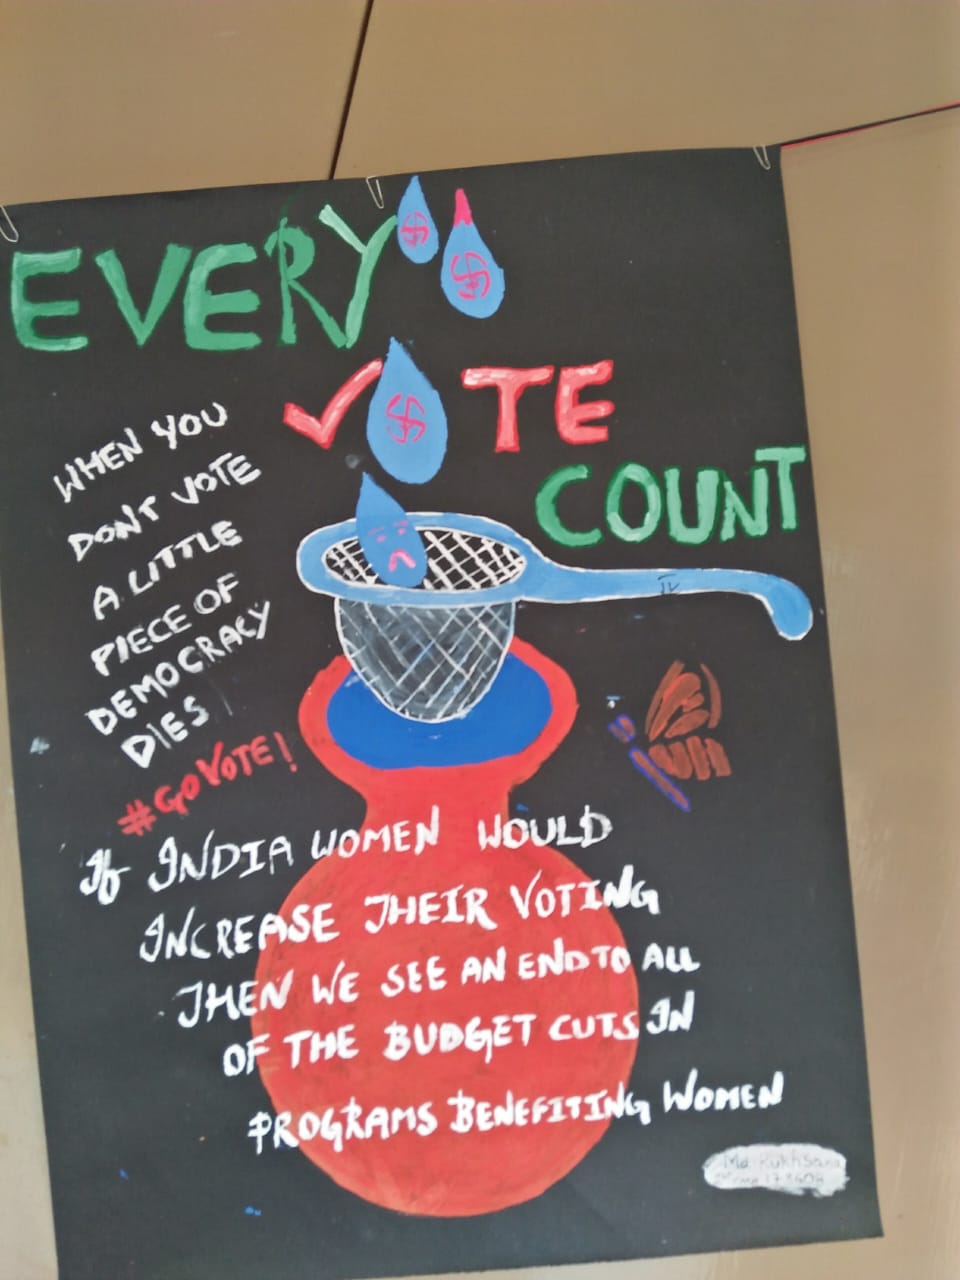 EVERY
VOTE
COUNT
WHEN YOU
DONT VOTE
A LITTLE
PIECE OF
DEMOCRACY
DIES
#GOVOTE!
If INDIA WOMEN WOULD
INCREASE THEIR VOTING
THEN WE SEE AN END TO ALL
OF THE BUDGET CUTS IN
PROGRAMS BENEFITING WOMEN
Md. Rukhsana